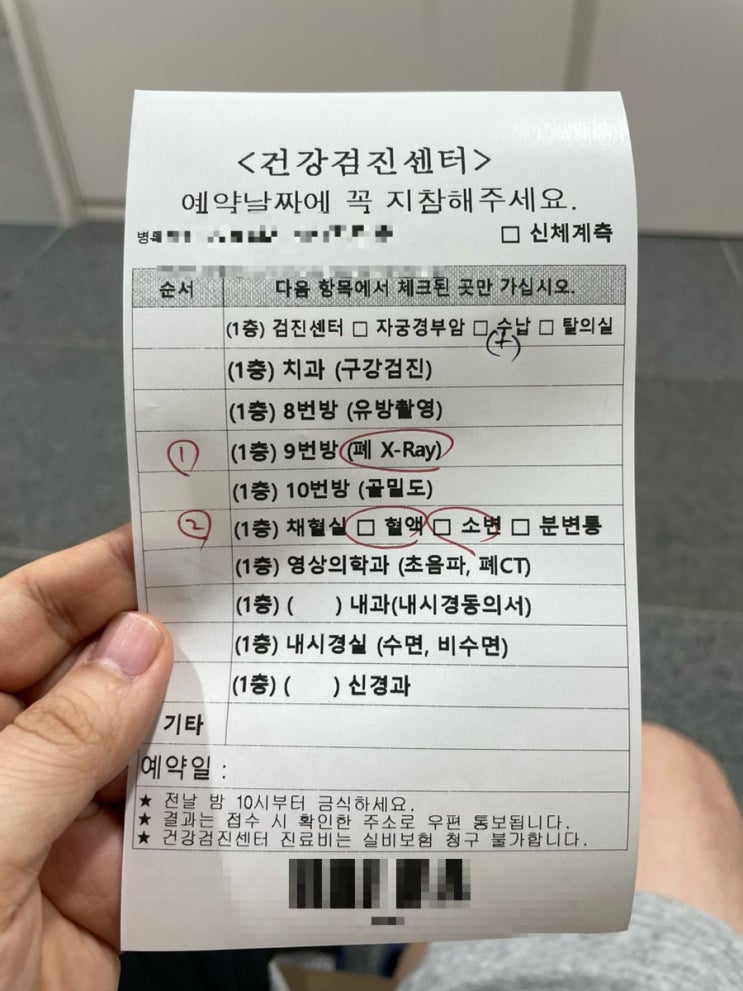 <건강검진센터>
예약날짜에 꼭 지참해주세요.
□ 신체계측
순서 다음 항목에서 체크된 곳만 가십시오.
(1층) 검진센터 □ 자궁경부암 □ 수납 □ 탈의실
(1층) 치과 (구강검진)
(1층) 8번방 (유방촬영)
① (1층) 9번방 (폐 X-Ray)
(1층) 10번방 (골밀도)
② (1층) 채혈실 □ 혈액 □ 소변 □ 분변통
(1층) 영상의학과 (초음파, 폐CT)
(1층) ( ) 내과(내시경동의서)
(1층) 내시경실 (수면, 비수면)
(1층) ( ) 신경과
기타
예약일 :
★ 전날 밤 10시부터 금식하세요.
★ 결과는 접수 시 확인한 주소로 우편 통보됩니다.
★ 건강검진센터 진료비는 실비보험 청구 불가합니다.